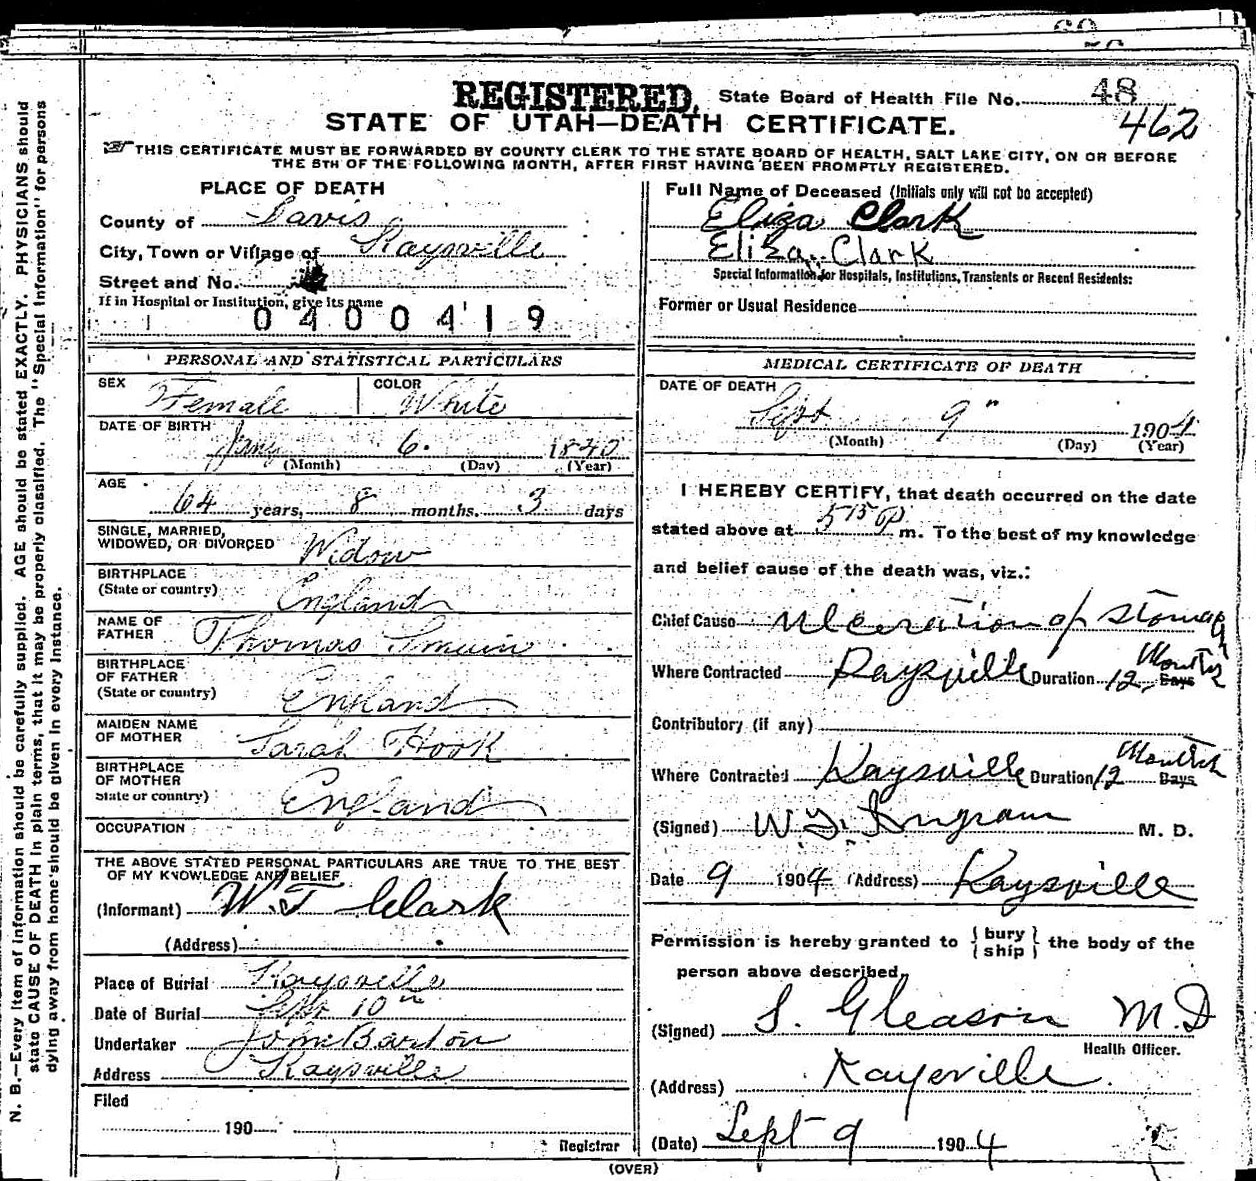 REGISTERED. State Board of Health File No. 48
462
STATE OF UTAH—DEATH CERTIFICATE.
THIS CERTIFICATE MUST BE FORWARDED BY COUNTY CLERK TO THE STATE BOARD OF HEALTH, SALT LAKE CITY, ON OR BEFORE
THE 5TH OF THE FOLLOWING MONTH, AFTER FIRST HAVING BEEN PROMPTLY REGISTERED.
N. B.—Every item of information should be carefully supplied. AGE should be stated EXACTLY. PHYSICIANS should
state CAUSE OF DEATH in plain terms, that it may be properly classified. The "Special Information" for persons
dying away from home should be given in every instance.
PLACE OF DEATH
County of Davis
City, Town or Village of Kaysville
Street and No.
If in Hospital or Institution, give its name
0400419
PERSONAL AND STATISTICAL PARTICULARS
SEX Female COLOR White
DATE OF BIRTH
Jany 6. 1840
(Month) (Day) (Year)
AGE
64 years, 8 months, 3 days
SINGLE, MARRIED,
WIDOWED, OR DIVORCED Widow
BIRTHPLACE
(State or country) England
NAME OF
FATHER Thomas Smuin
BIRTHPLACE
OF FATHER
(State or country) England
MAIDEN NAME
OF MOTHER Sarah Hook
BIRTHPLACE
OF MOTHER
State or country) England
OCCUPATION
THE ABOVE STATED PERSONAL PARTICULARS ARE TRUE TO THE BEST
OF MY KNOWLEDGE AND BELIEF
(Informant) W. T Clark
(Address)
Place of Burial Kaysville
Date of Burial Sept 10th
Undertaker John Barton
Address Kaysville
Filed
190
Registrar
Full Name of Deceased (Initials only will not be accepted)
Eliza Clark
Eliza Clark
Special Information for Hospitals, Institutions, Transients or Recent Residents:
Former or Usual Residence
MEDICAL CERTIFICATE OF DEATH
DATE OF DEATH
Sept 9" 1904
(Month) (Day) (Year)
I HEREBY CERTIFY, that death occurred on the date
stated above at 5 15 P m. To the best of my knowledge
and belief cause of the death was, viz.:
Chief Cause Ulceration of Stomach
Where Contracted Kaysville Duration 12 Months Days
Contributory (if any)
Where Contracted Kaysville Duration 12 Months Days
(Signed) W. Y. Ingram M. D.
Date 9 1904 (Address) Kaysville
Permission is hereby granted to { bury ship } the body of the
person above described,
(Signed) S. Gleason M.D
Health Officer.
(Address) Kaysville
(Date) Sept 9 1904
(OVER)